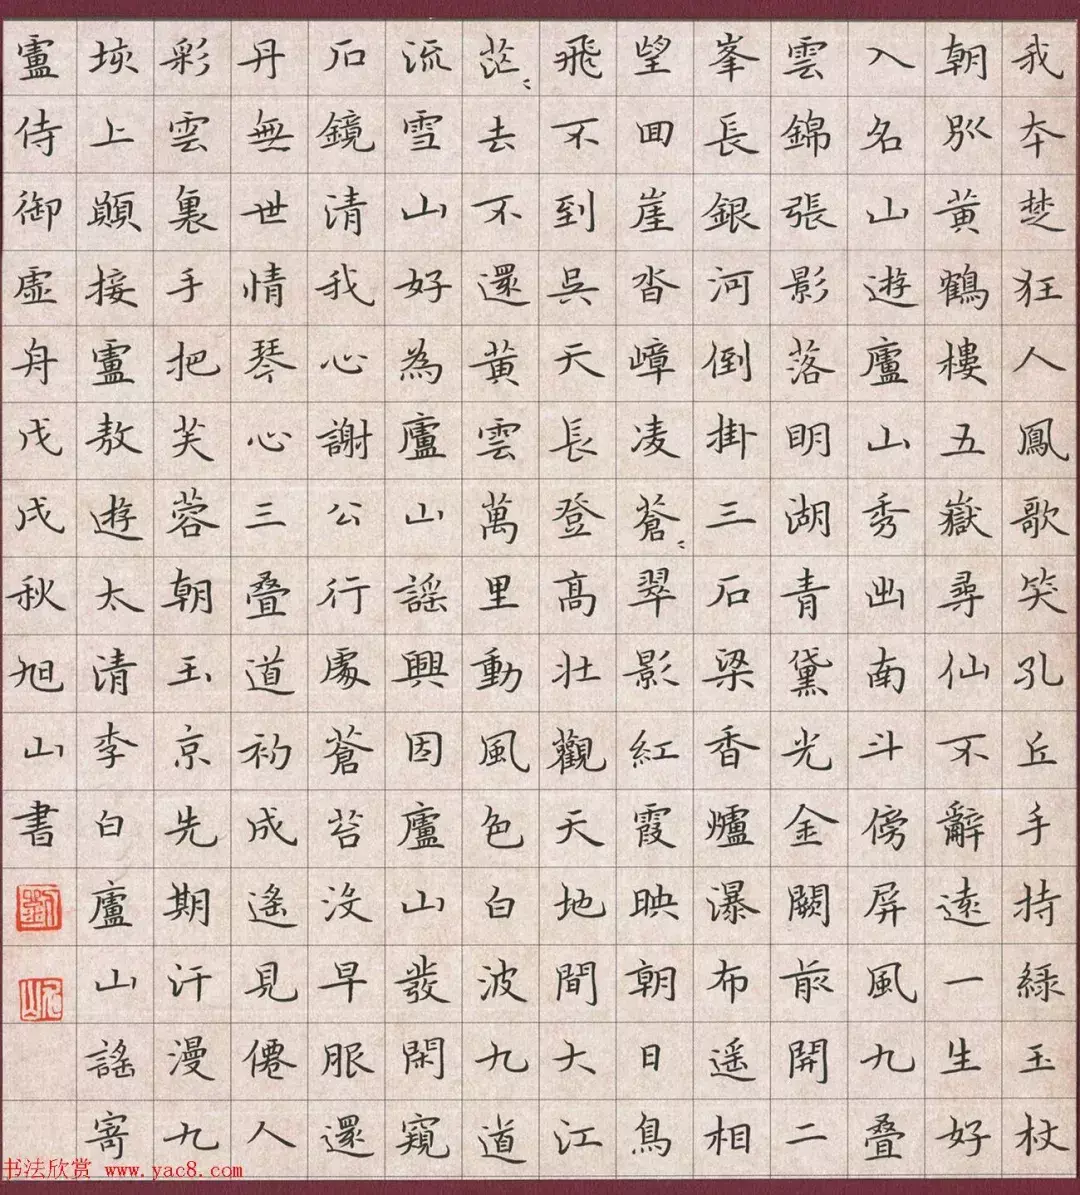 我本楚狂人鳳歌笑孔丘手持緑玉杖
朝別黄鶴樓五嶽尋仙不辭遠一生好
入名山遊廬山秀出南斗傍屏風九疊
雲錦張影落明湖青黛光金闕前開二
峯長銀河倒掛三石梁香爐瀑布遥相
望回崖沓嶂凌蒼〻翠影紅霞映朝日鳥
飛不到吳天長登高壯觀天地間大江
茫〻去不還黄雲萬里動風色白波九道
流雪山好為廬山謡興因廬山發閑窺
石鏡清我心謝公行處蒼苔没早服還
丹無世情琴心三疊道初成遥見僊人
彩雲裏手把芙蓉朝玉京先期汗漫九
垓上願接盧敖遊太清李白廬山謡寄
盧侍御虛舟戊戌秋旭山書
书法欣赏 www.yac8.com